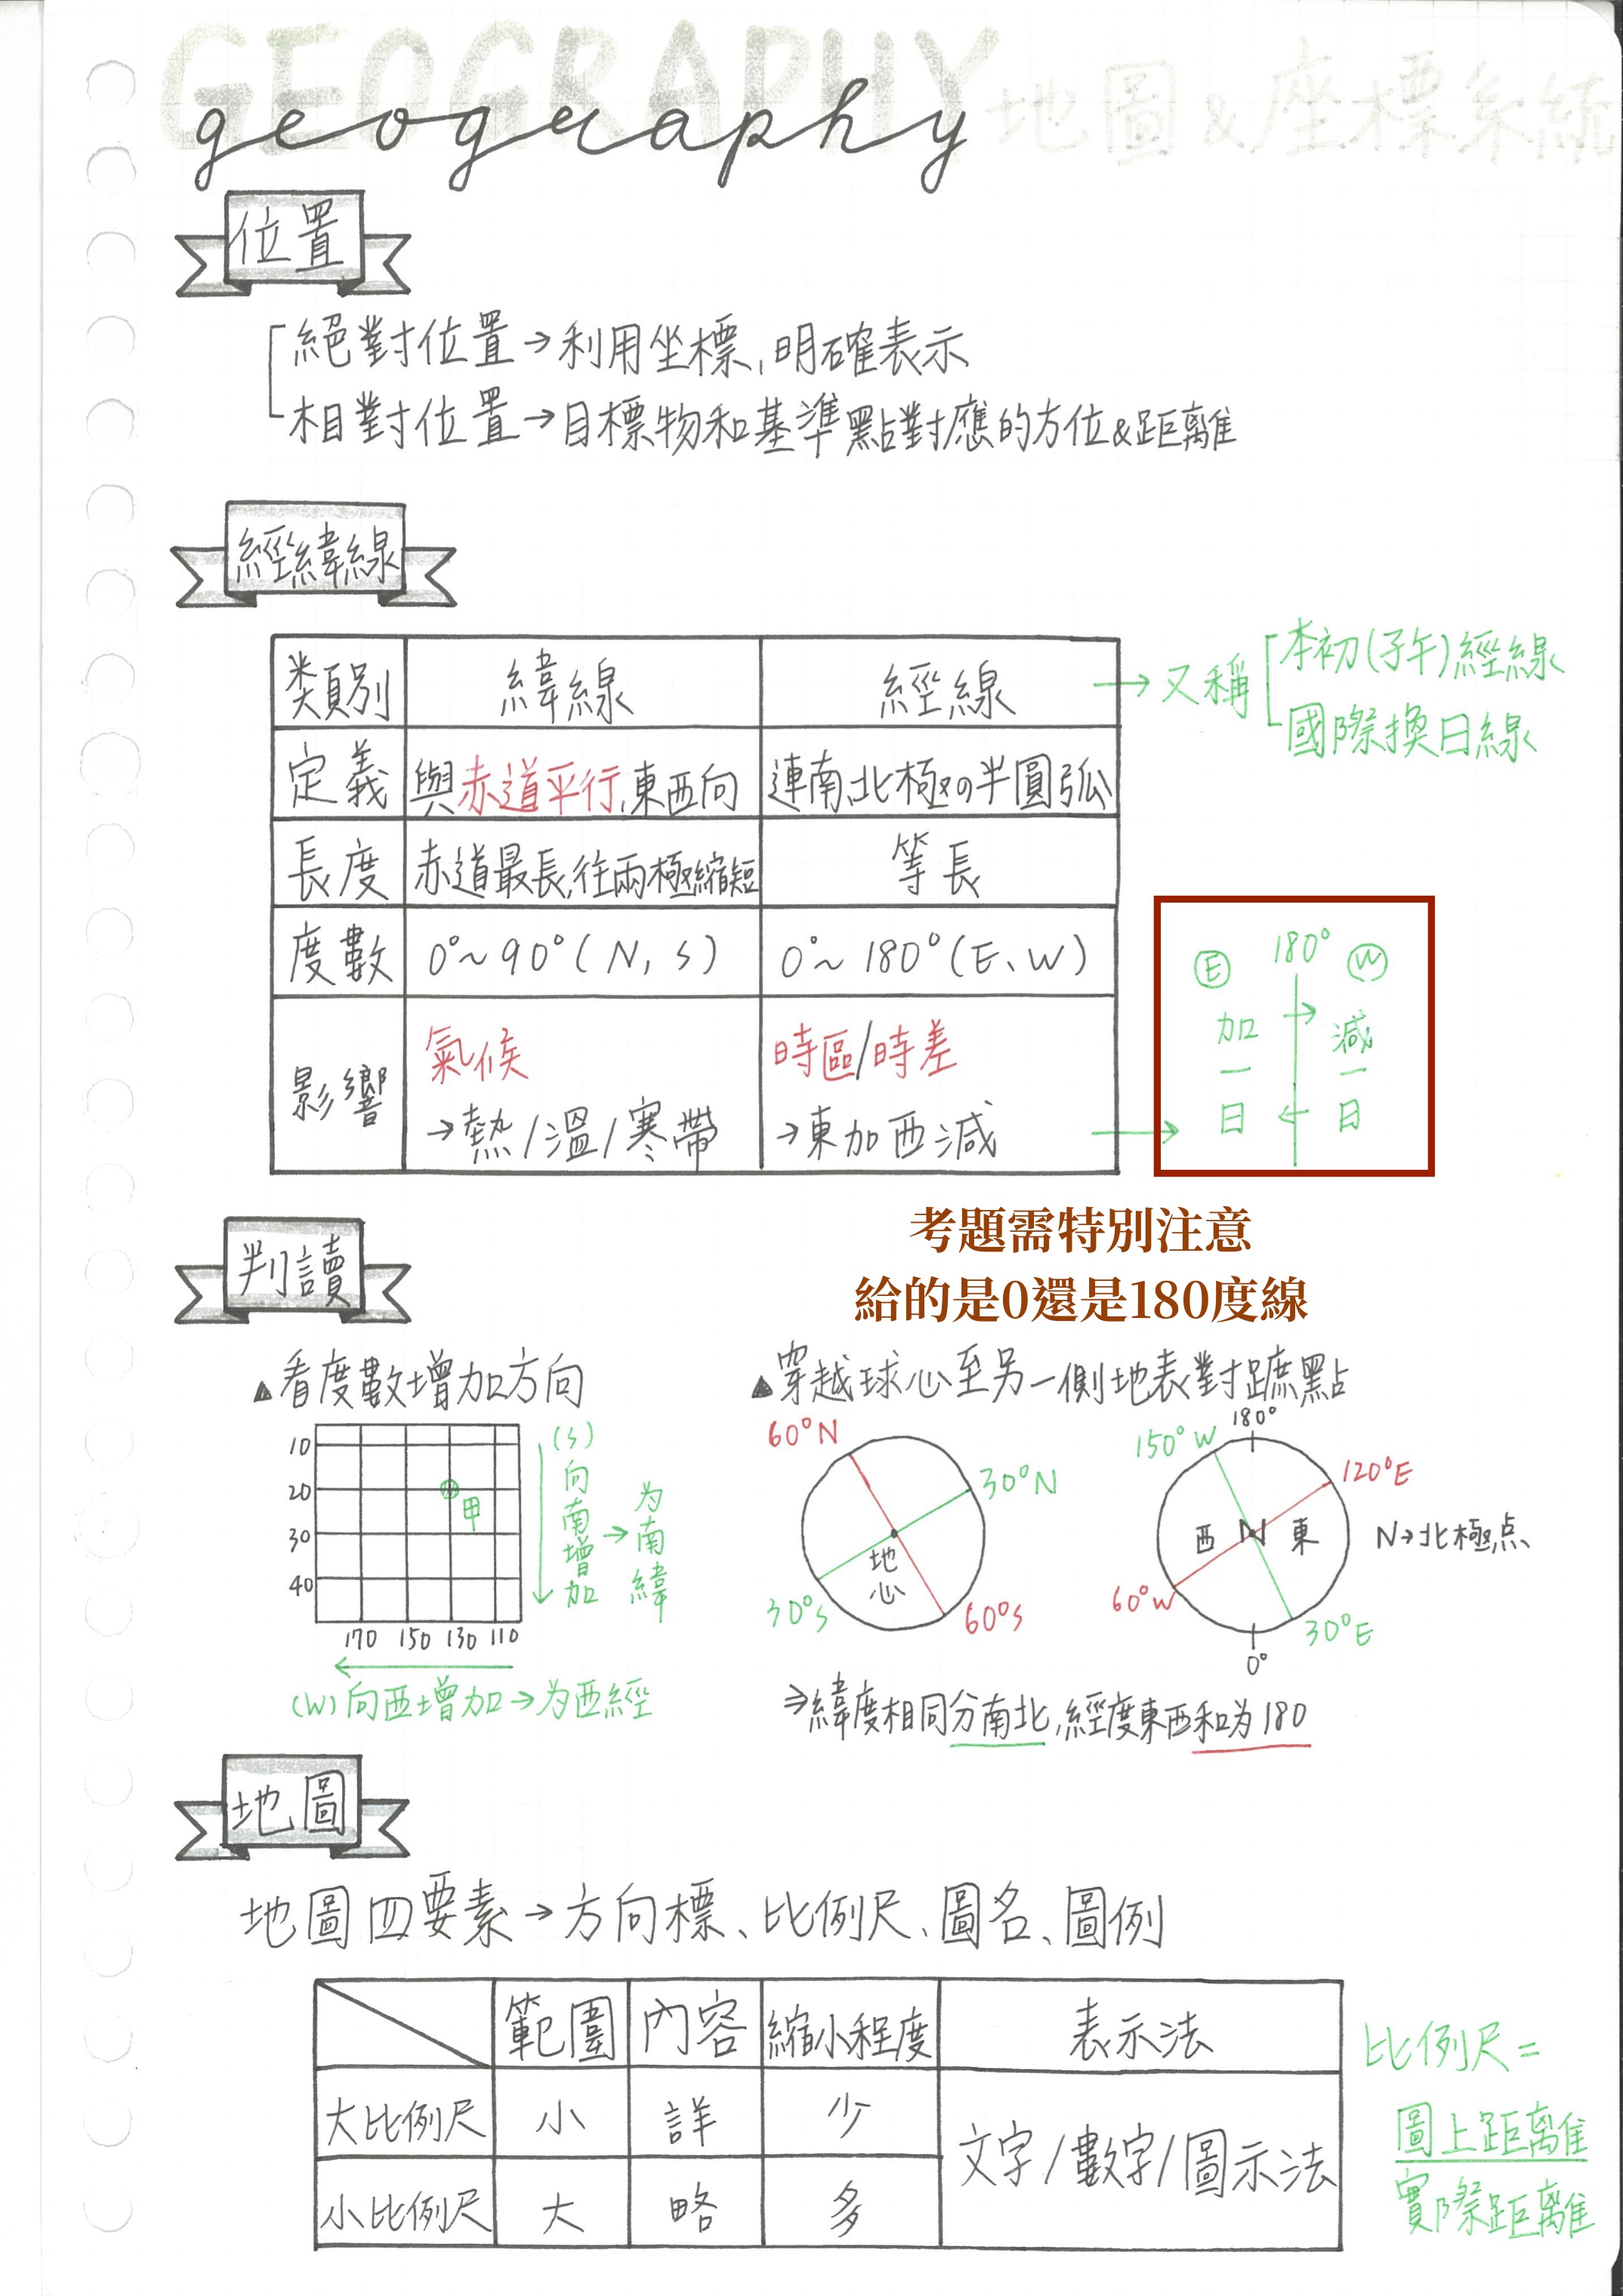 GEOGRAPHY 地圖&座標系統
geography
位置
絕對位置→利用坐標,明確表示
相對位置→目標物和基準點對應的方位&距離
經緯線
类頁別 緯線 經線
→又稱 本初(子午)經線
國際換日線
定義 與赤道平行,東西向 連南、北極の半圓弧
長度 赤道最長,往兩極縮短 等長
度數 0°~90°(N,S) 0°~180°(E、W)
影響 氣候 時區/時差
→熱/溫/寒帶 →東加西減
E 180° W
加一日 → 減一日 ←
考題需特別注意
給的是0還是180度線
判讀
▲看度數增加方向
10
20
30
40
170 150 130 110
甲
(S)向南增加→为南緯
(W)向西增加→为西經
▲穿越球心至另一側地表對蹠點
60°N
30°N
地心
30°S
60°S
180°
150°W
120°E
西 N 東
N→北極点
60°W
30°E
0°
⇒緯度相同分南北,經度東西和为180
地圖
地圖四要素→方向標、比例尺、圖名、圖例
範圍 內容 縮小程度 表示法
大比例尺 小 詳 少 文字/數字/圖示法
小比例尺 大 略 多
比例尺=
圖上距離
實際距離